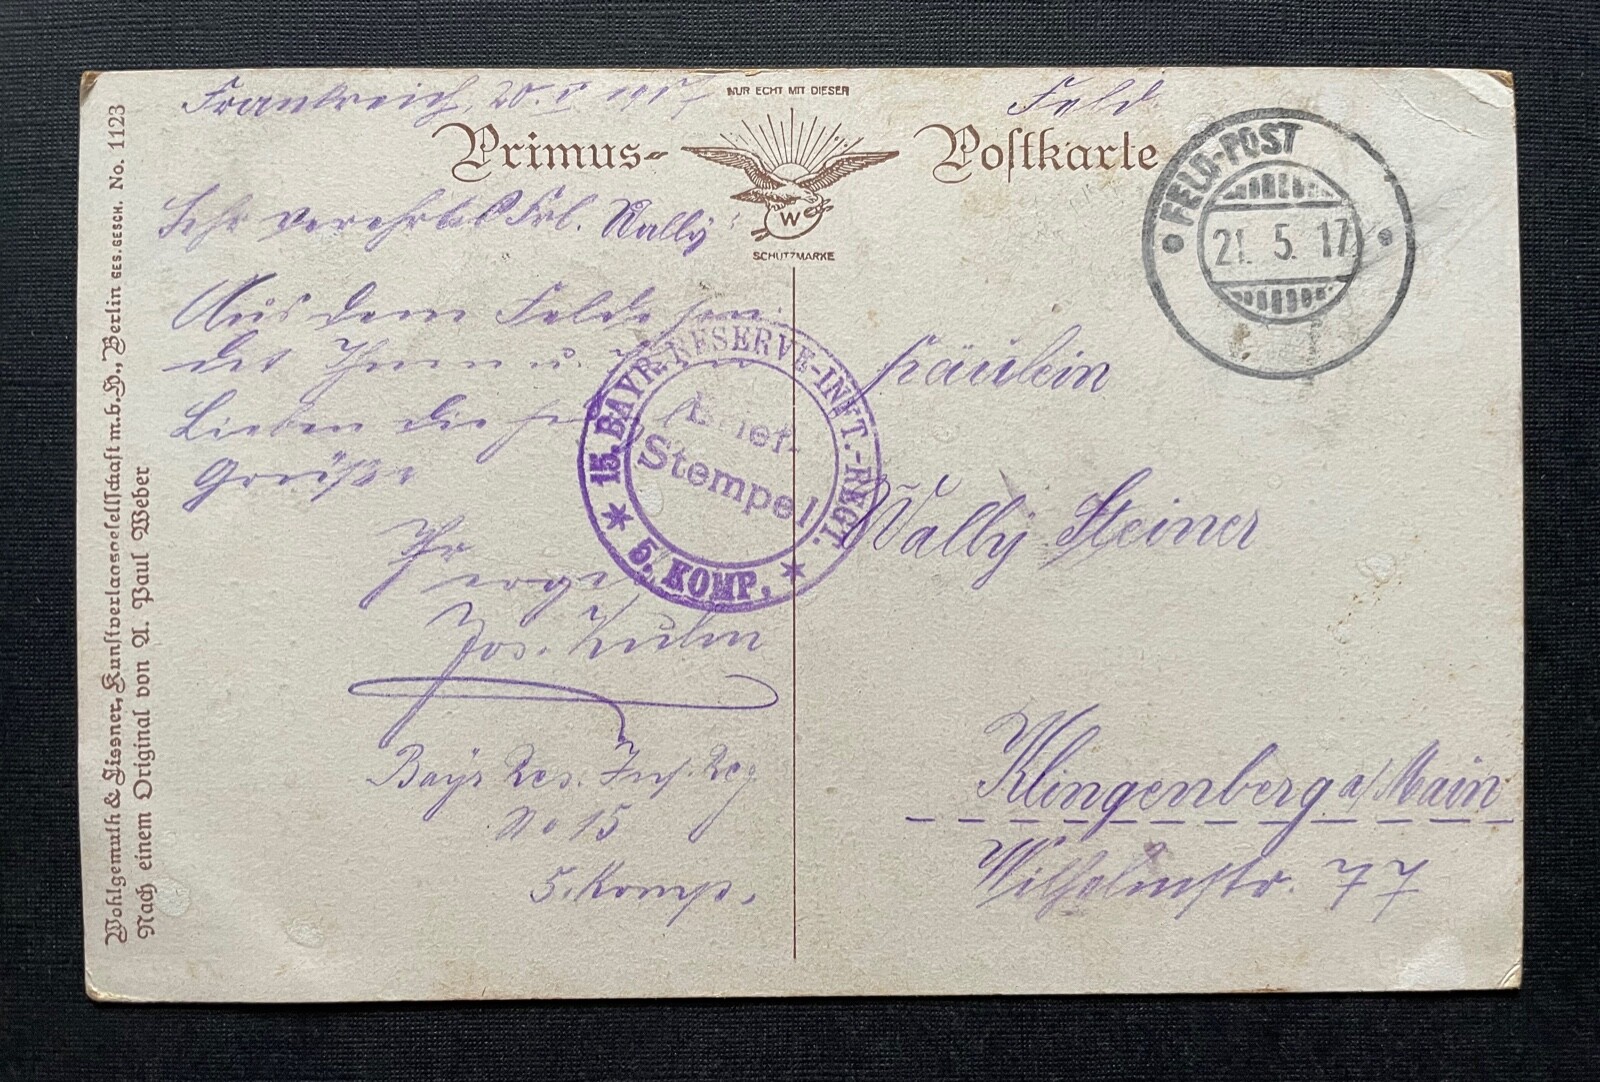 Frankreich, 20. V. 1917
Feld
NUR ECHT MIT DIESER
Primus-
Postkarte
W
SCHUTZMARKE
FELD-POST
21. 5. 17
Sehr verehrtes Frl. Wally!
Aus dem Felde sen-
det Ihnen u. Ihren
Lieben die herzl.
Grüße
Ihr
Jos. Kuhn
Bayr Res. Inf. Reg
No 15
5. Komp.
15. BAYR. RESERVE-INFT.-REGT.
Brief-
Stempel
5. KOMP.
Fräulein
Wally Steiner
Klingenberg a/Main
Wilhelmstr. 77
Wohlgemuth & Lissner, Kunstverlagsgesellschaft m.b.H., Berlin GES.GESCH. No. 1123
Nach einem Original von A. Paul Weber